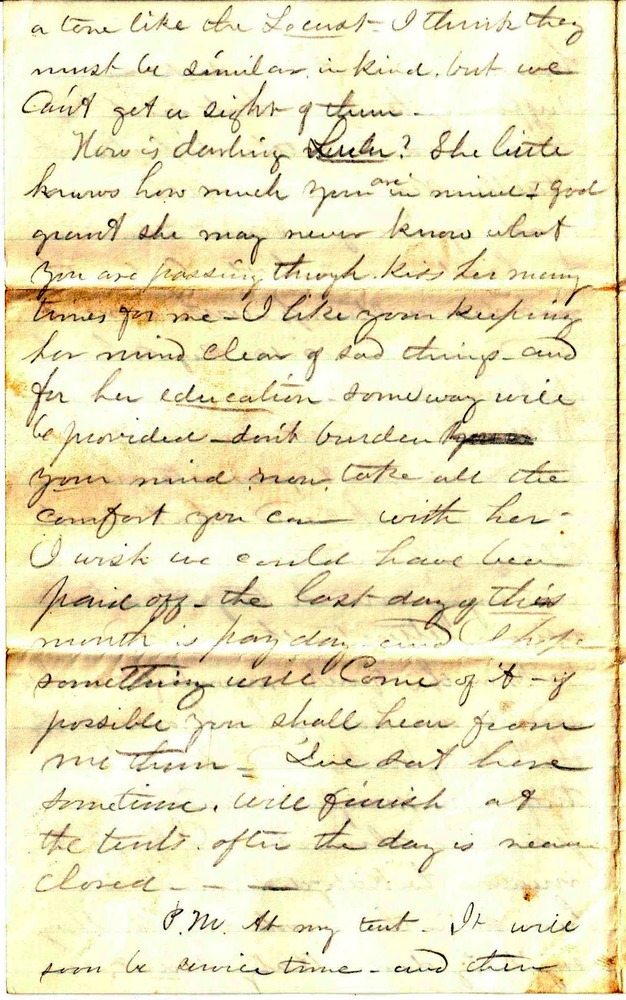 a tone like the Locust - I think they
must be similar in kind, but we
Can't get a sight of them -
How is darling Lulu? She little
knows how much you are in mind! God
grant she may never know what
you are passing through. Kiss her many
times for me - I like your keeping
her mind clear of sad things - and
for her education - some way will
be provided - don't burden
your mind now, take all the
comfort you can with her -
I wish we could have been
paid off - the last day of this
month is pay day - and I hope
something will Come of it - if
possible you shall hear from
me then - I've sat here
sometime, will finish at
the tents after the day is near
closed -
P.M. At my tent - It will
soon be service time - and then